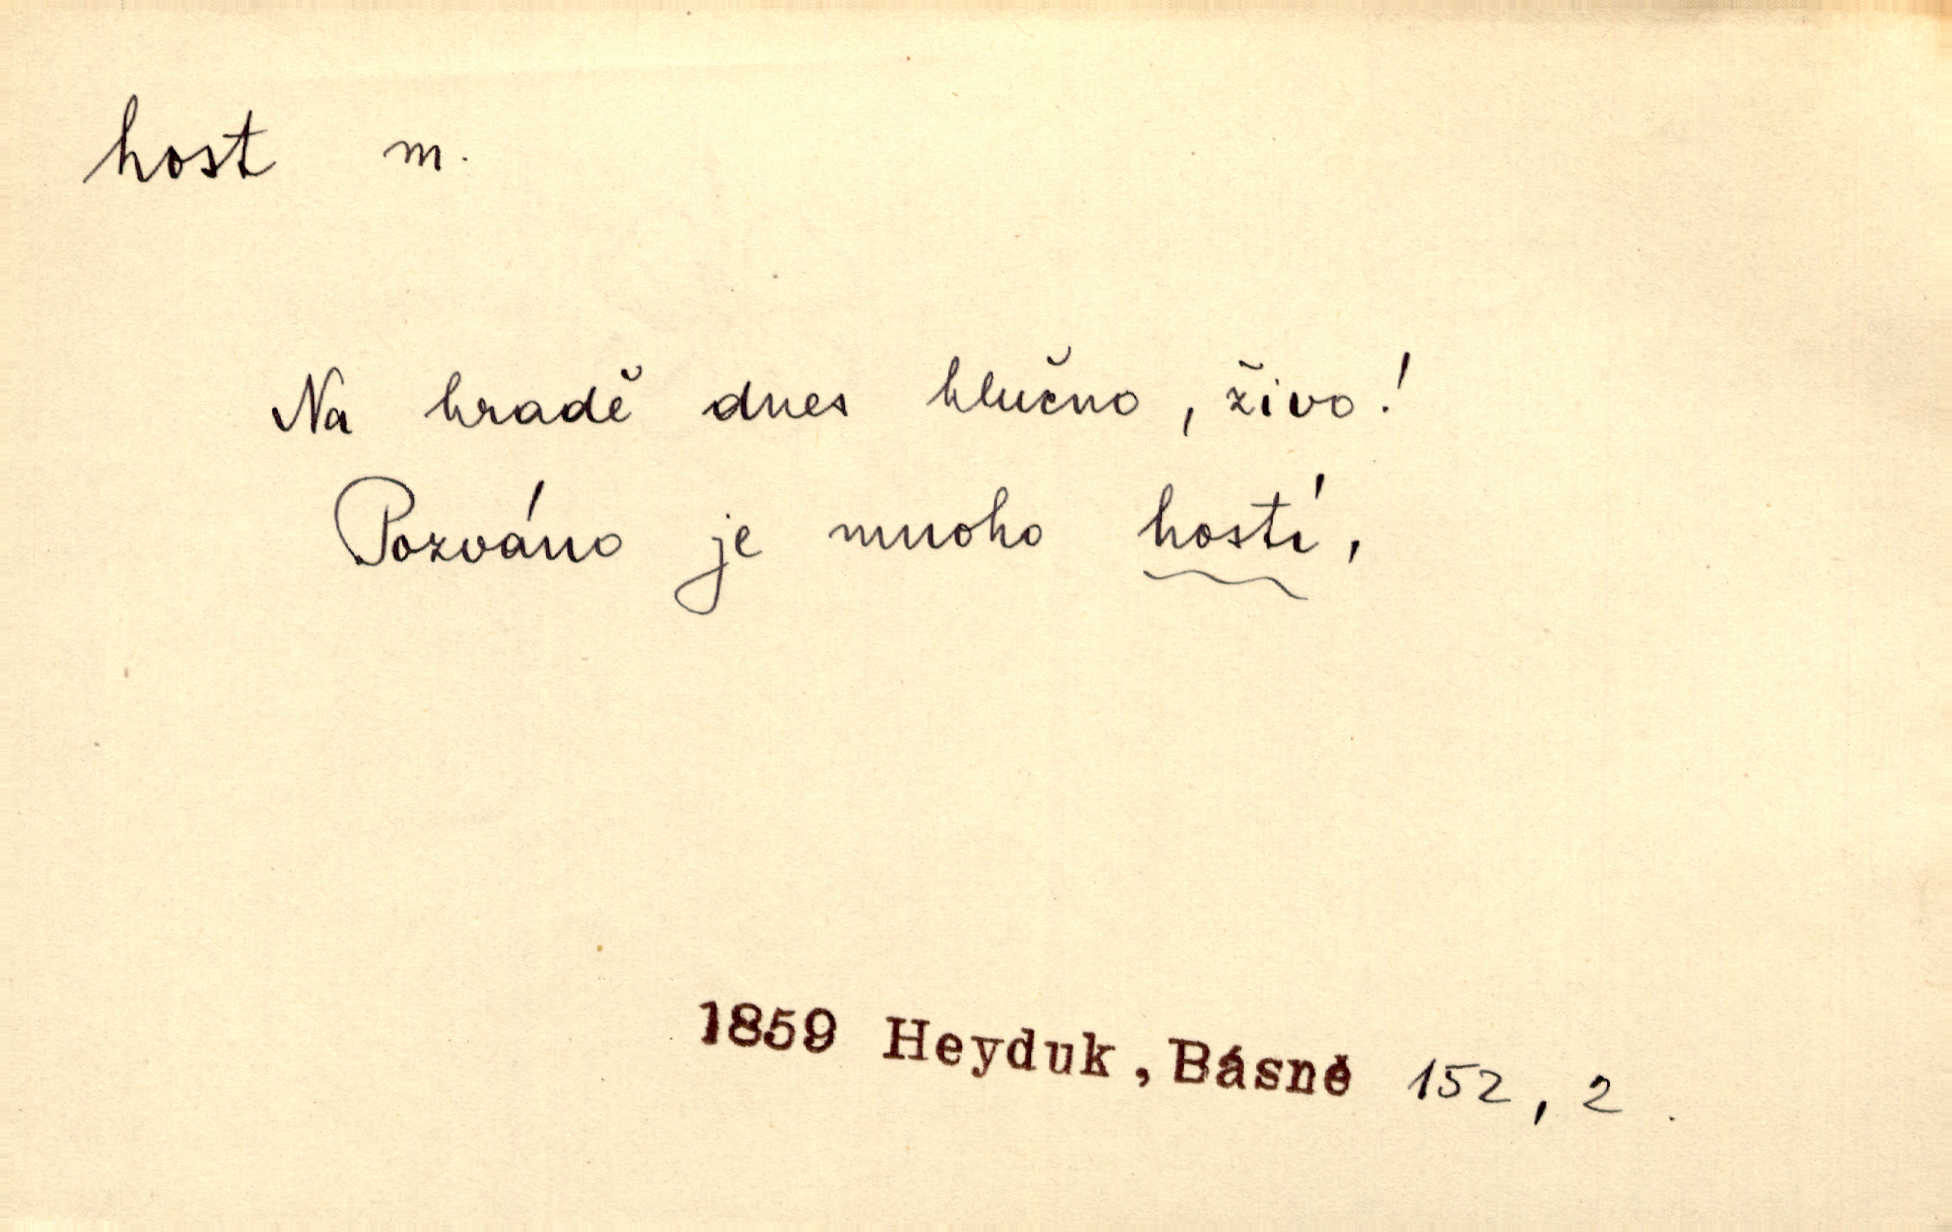 host m.
Na hradě dnes hlučno, živo!
Pozváno je mnoho hostí,
1859 Heyduk, Básně 152, 2.